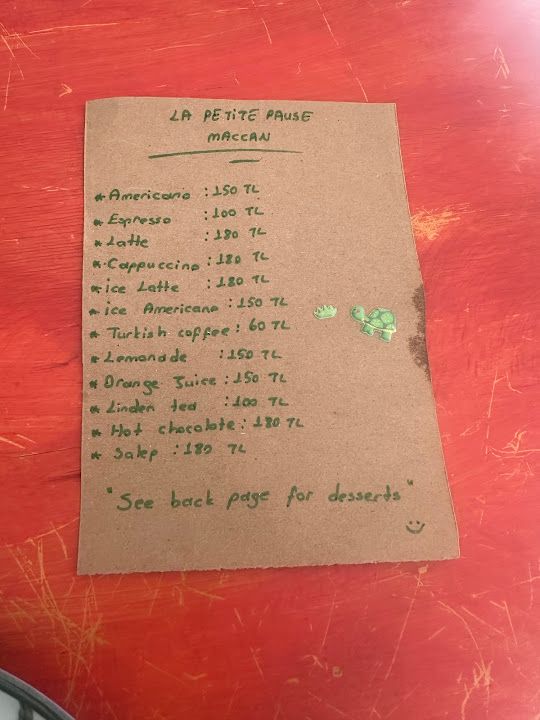 LA PETITE PAUSE
MACCAN
* Americano : 150 TL
* Espresso : 100 TL
* Latte : 180 TL
* Cappuccino : 180 TL
* ice Latte : 180 TL
* ice Americano : 150 TL
* Turkish coffee : 60 TL
* Lemonade : 150 TL
* Orange Juice : 150 TL
* Linden tea : 100 TL
* Hot chocolate : 180 TL
* Salep : 180 TL
"See back page for desserts"